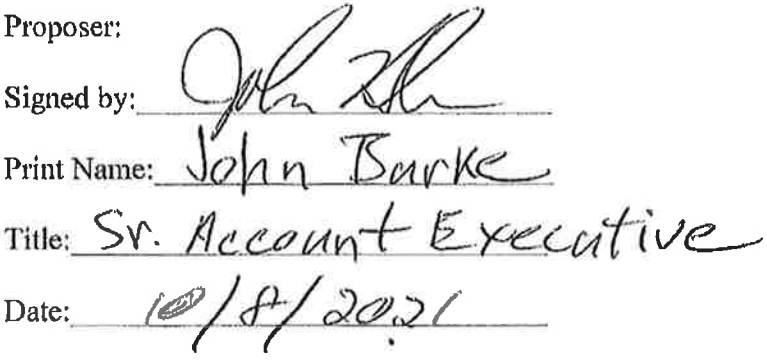 Proposer:
Signed by: John
Print Name: John Burke
Title: Sr. Account Executive
Date: 10/8/2021